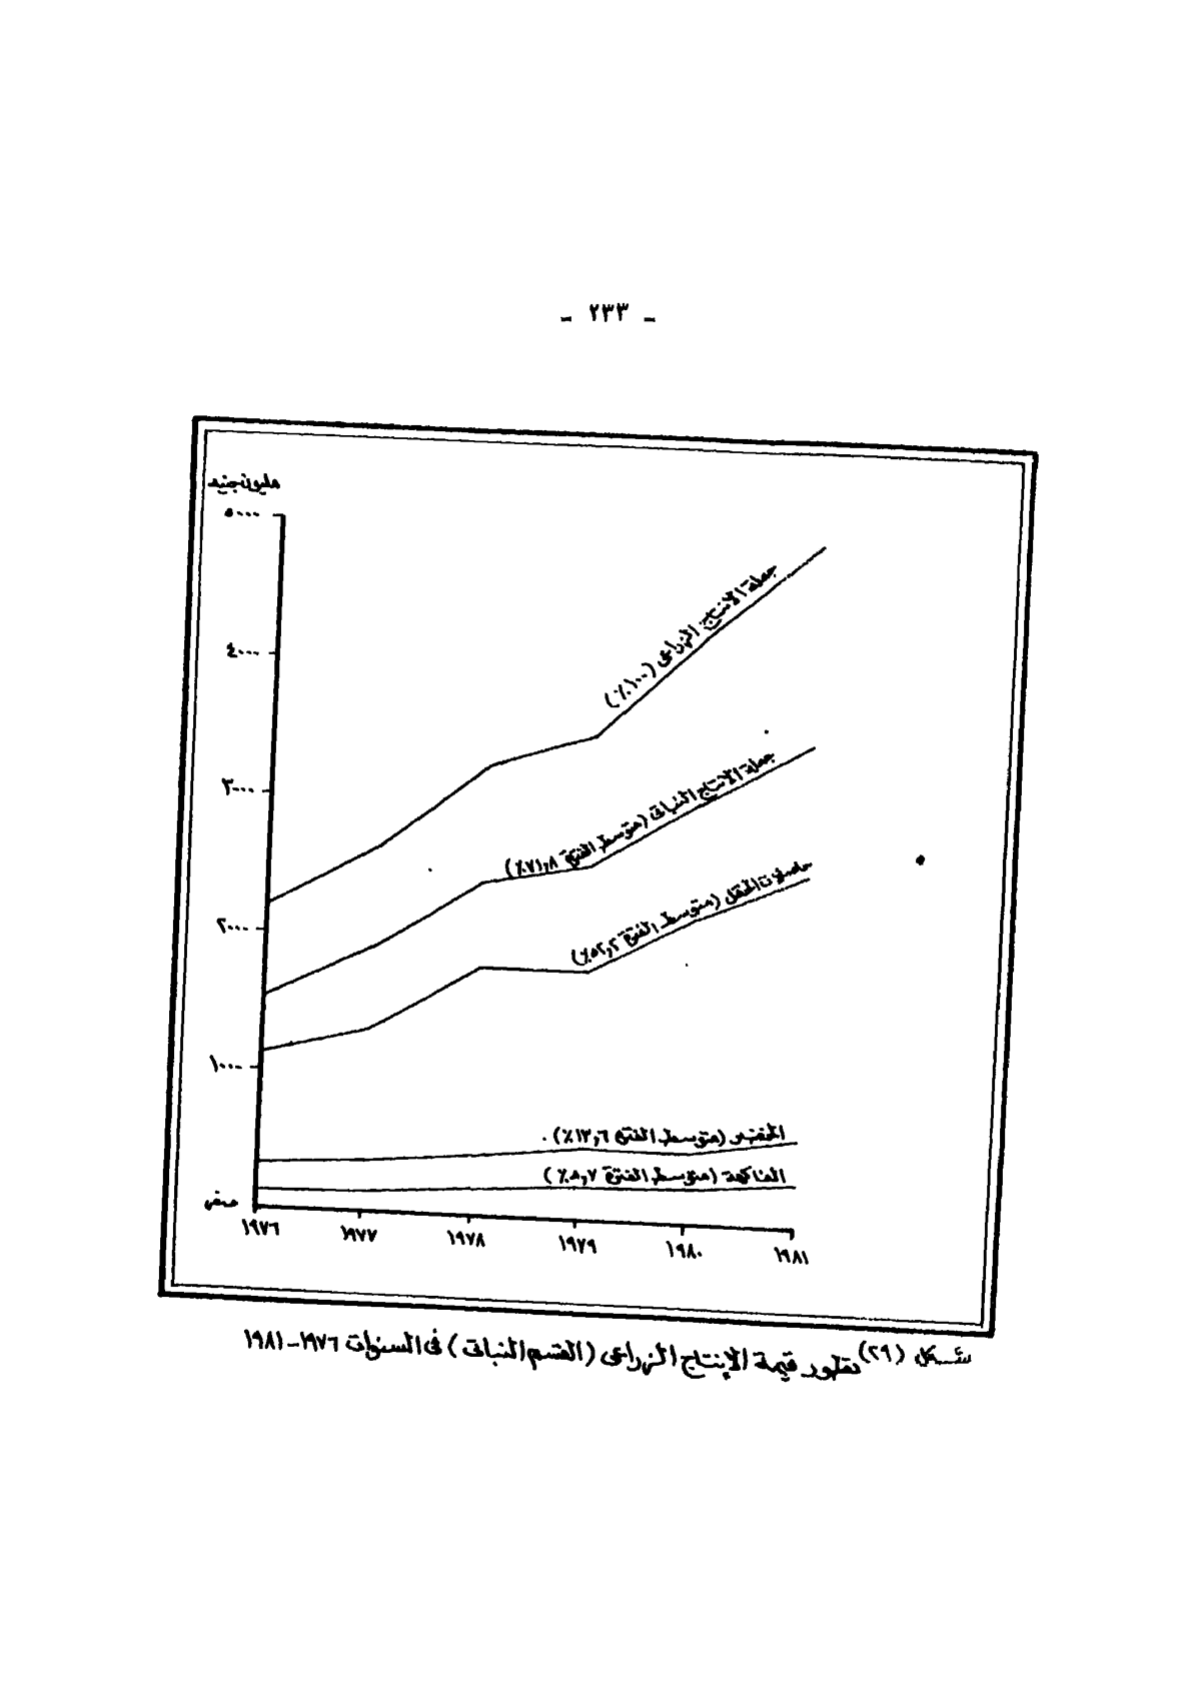 - ٢٣٣ -
مليون جنيه
٥٠٠٠
٤٠٠٠
٣٠٠٠
٢٠٠٠
١٠٠٠
صفر
جملة الانتاج الزراعى (١٠٠٪)
جملة الانتاج النباتى (متوسط الفترة ٧١,٨٪)
حاصلات الحقل (متوسط الفترة ٥٢,٢٪)
الخضر (متوسط الفترة ١٢,٦٪)
الفاكهة (متوسط الفترة ٨,٧٪)
١٩٧٦ ١٩٧٧ ١٩٧٨ ١٩٧٩ ١٩٨٠ ١٩٨١
شكل (٢٩) تطور قيمة الإنتاج الزراعى (القسم النباتى) فى السنوات ١٩٧٦-١٩٨١